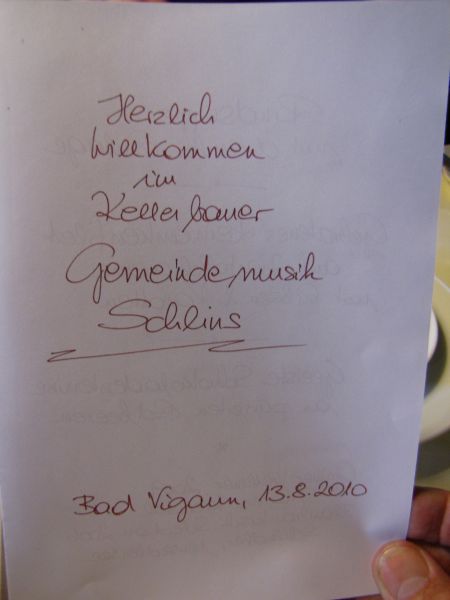 Herzlich
willkommen
im
Kellerbauer
Gemeindemusik
Schlins
Bad Vigaun, 13.8.2010